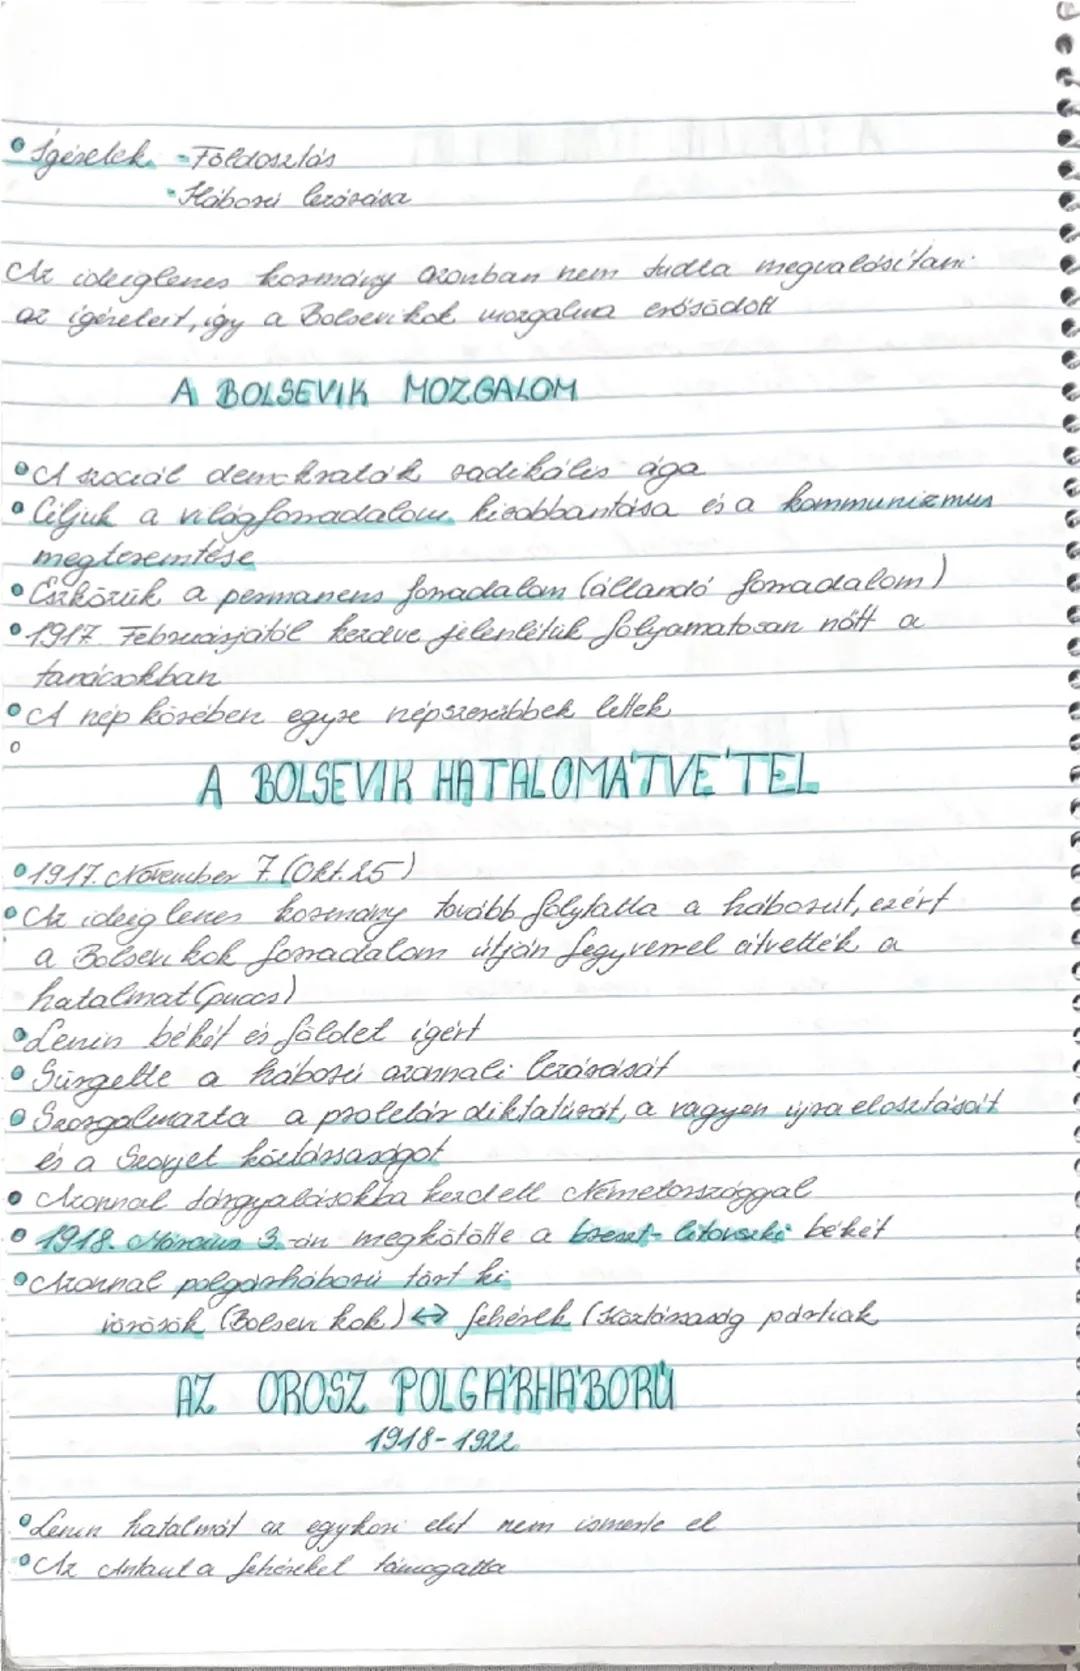 • Ígéretek - Földosztás
- Háború lezárása
Az ideiglenes kormány azonban nem tudta megvalósítani
az ígéreteit, így a Bolsevikok mozgalma erősödött
A BOLSEVIK MOZGALOM
• A szociál demokraták radikális ága
• Céljuk a világforradalom kirobbantása és a kommunizmus
megteremtése
• Eszközük a permanens forradalom (állandó forradalom)
• 1917. Februárjától kezdve jelenlétük folyamatosan nőtt a
tanácsokban
• A nép körében egyre népszerűbbek lettek
A BOLSEVIK HATALOMÁTVÉTEL
• 1917. November 7. (Okt. 25)
• Az ideiglenes kormány tovább folytatta a háborút, ezért
a Bolsevikok forradalom útján fegyverrel átvették a
hatalmat (puccs)
• Lenin békét és földet ígért
• Sürgette a háború azonnali lezárását
• Szorgalmazta a proletár diktatúrát, a vagyon újra elosztását
és a Szovjet köztársaságot
• Azonnal tárgyalásokba kezdett Németországgal
• 1918. Március 3.-án megkötötte a breszt-litovszki békét
• Azonnal polgárháború tört ki
vörösök (Bolsevikok) ↔ fehérek (Köztársaság pártiak
AZ OROSZ POLGÁRHÁBORÚ
1918-1922
• Lenin hatalmát az egykori elit nem ismerte el
• Az Antant a fehéreket támogatta